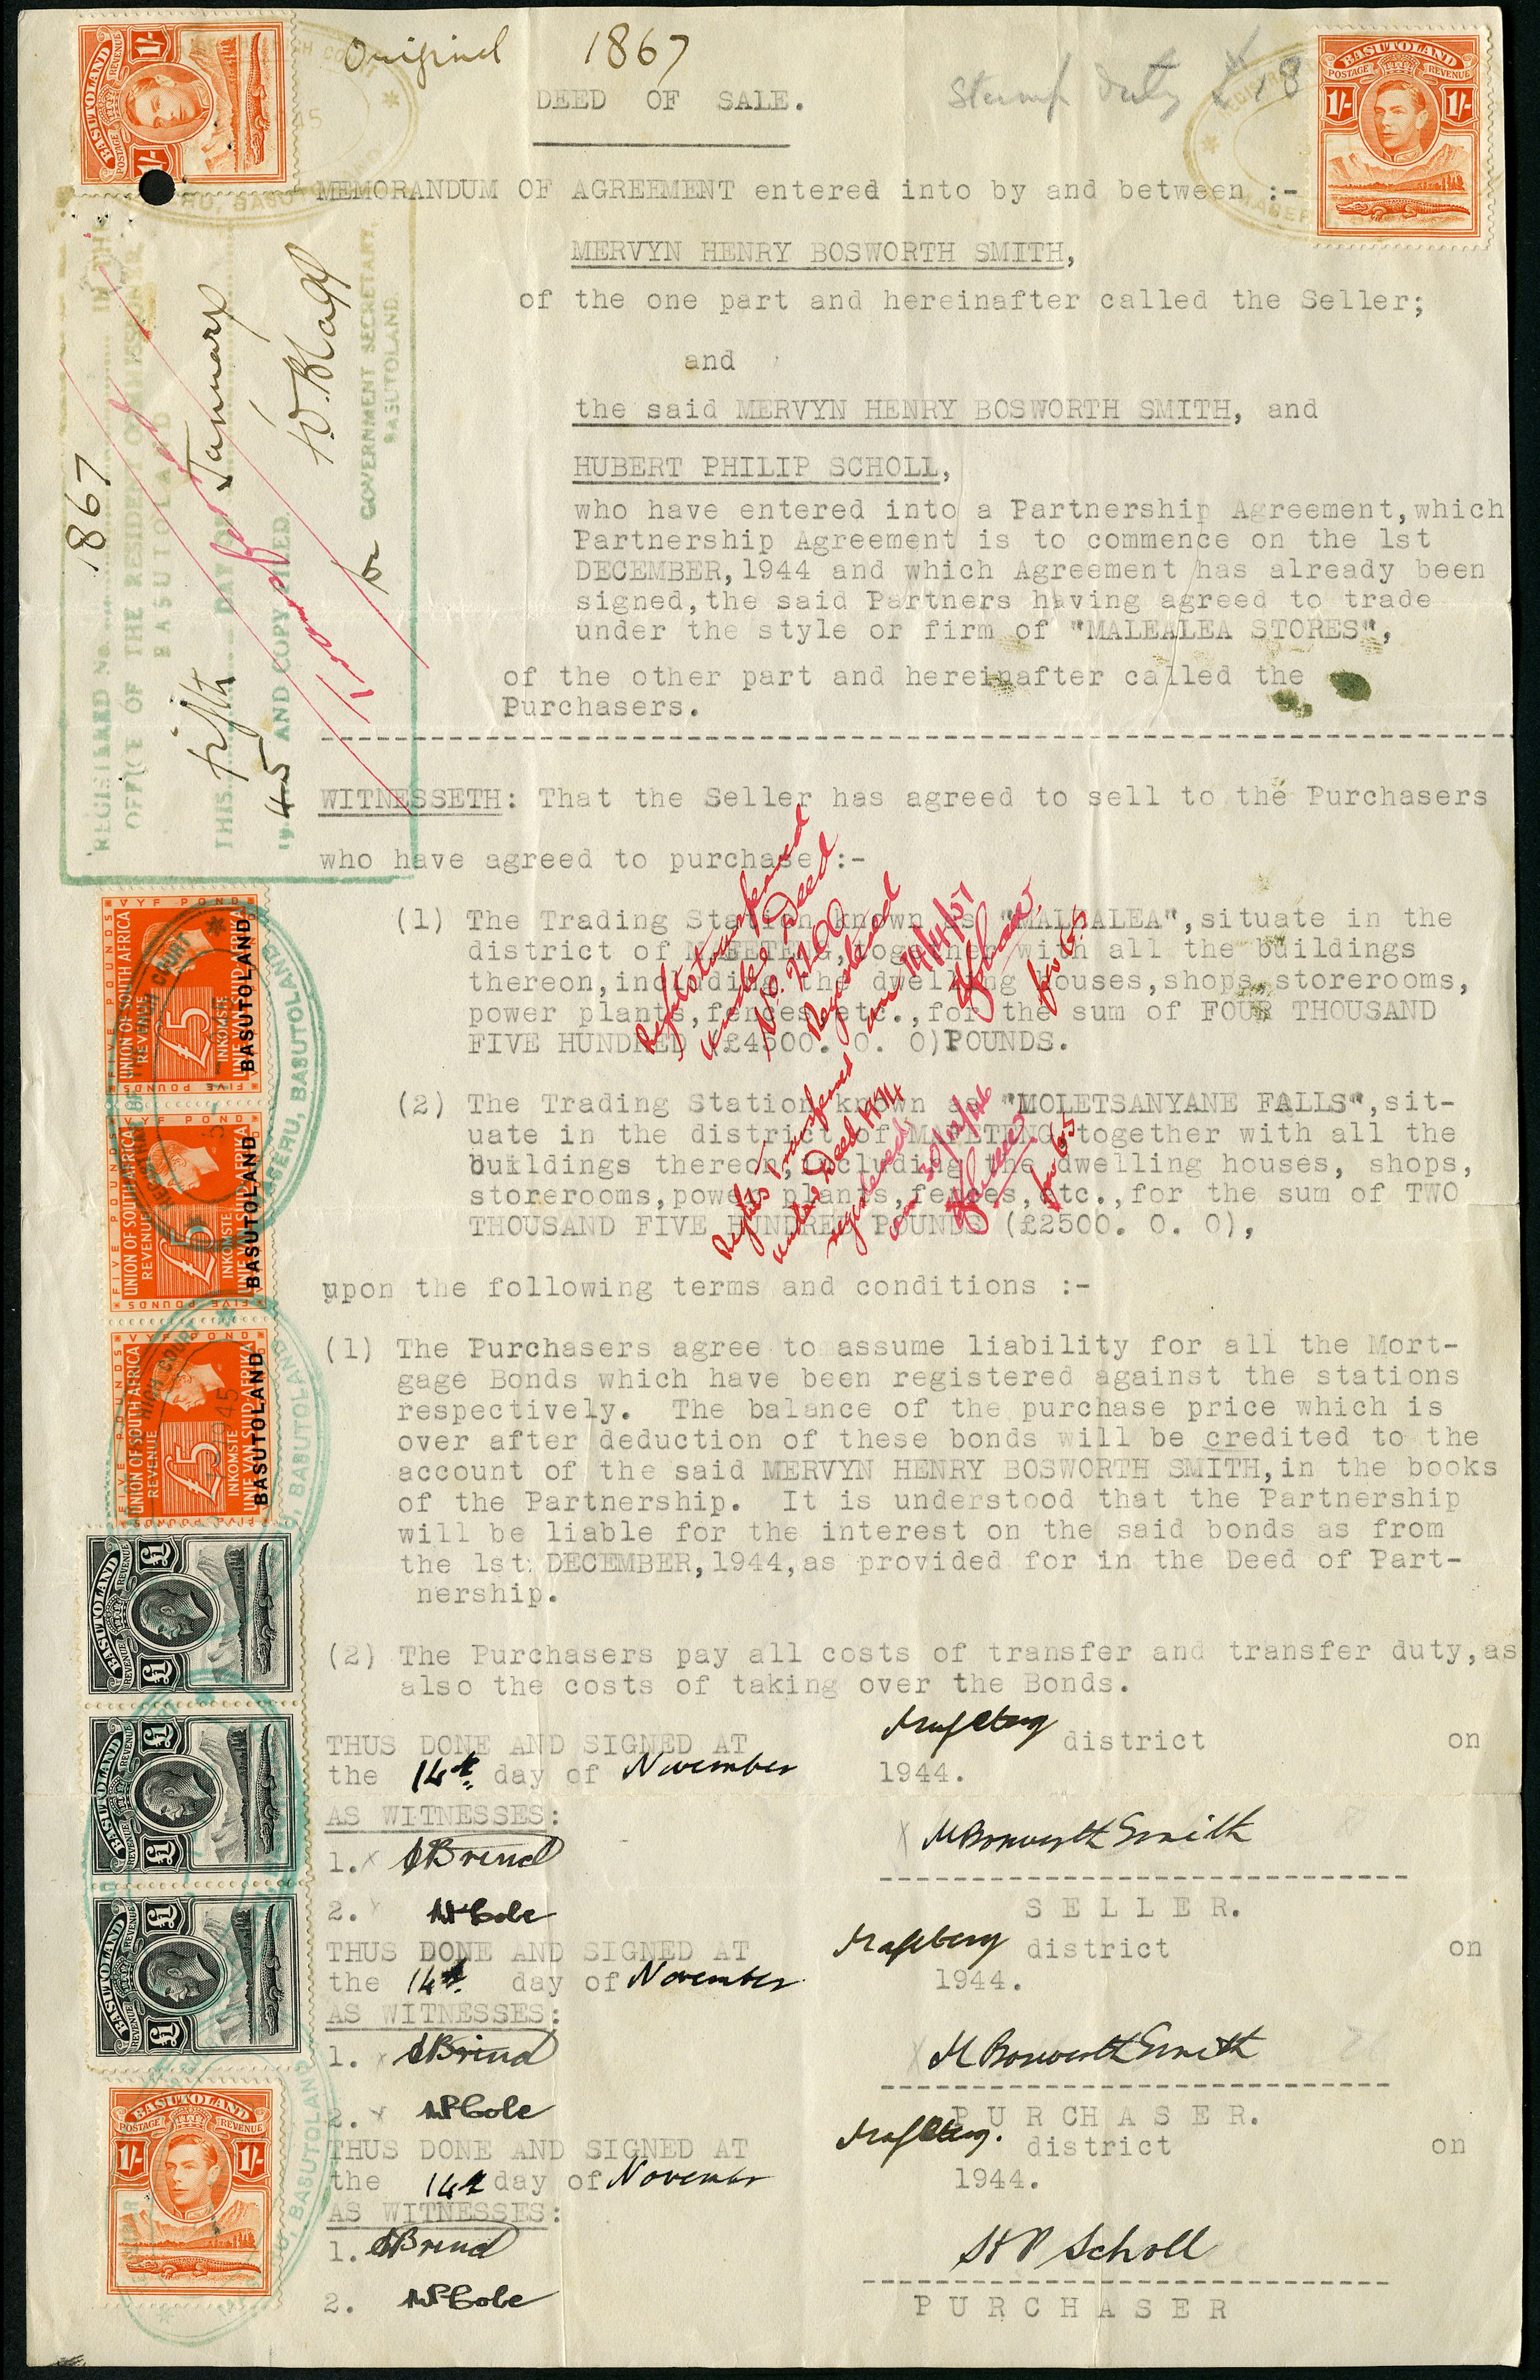 Original 1867
Stamp Duty £18
DEED OF SALE.
MEMORANDUM OF AGREEMENT entered into by and between :-
MERVYN HENRY BOSWORTH SMITH,
of the one part and hereinafter called the Seller;
and
the said MERVYN HENRY BOSWORTH SMITH, and
HUBERT PHILIP SCHOLL,
who have entered into a Partnership Agreement, which
Partnership Agreement is to commence on the 1st
DECEMBER, 1944 and which Agreement has already been
signed, the said Partners having agreed to trade
under the style or firm of "MALEALEA STORES",
of the other part and hereinafter called the
Purchasers.
WITNESSETH: That the Seller has agreed to sell to the Purchasers
who have agreed to purchase :-
(1) The Trading Station known as "MALEALEA", situate in the
district of MAFETENG, together with all the buildings
thereon, including the dwelling houses, shops, storerooms,
power plants, fences etc., for the sum of FOUR THOUSAND
FIVE HUNDRED (£4500. 0. 0) POUNDS.
(2) The Trading Station known as "MOLETSANYANE FALLS", sit-
uate in the district of MAFETENG together with all the
buildings thereon, including the dwelling houses, shops,
storerooms, power plants, fences, etc., for the sum of TWO
THOUSAND FIVE HUNDRED POUNDS (£2500. 0. 0),
upon the following terms and conditions :-
(1) The Purchasers agree to assume liability for all the Mort-
gage Bonds which have been registered against the stations
respectively. The balance of the purchase price which is
over after deduction of these bonds will be credited to the
account of the said MERVYN HENRY BOSWORTH SMITH, in the books
of the Partnership. It is understood that the Partnership
will be liable for the interest on the said bonds as from
the 1st DECEMBER, 1944, as provided for in the Deed of Part-
nership.
(2) The Purchasers pay all costs of transfer and transfer duty, as
also the costs of taking over the Bonds.
THUS DONE AND SIGNED AT district on
the 14th day of November 1944.
AS WITNESSES:
1. Brind MBosworth Smith
2. Cole SELLER.
THUS DONE AND SIGNED AT district on
the 14th day of November 1944.
AS WITNESSES:
1. Brind M Bosworth Smith
2. Cole PURCHASER.
THUS DONE AND SIGNED AT district on
the 14th day of November 1944.
AS WITNESSES:
1. Brind H P Scholl
2. Cole PURCHASER
REGISTERED No. 1867 IN THE
OFFICE OF THE RESIDENT COMMISSIONER
BASUTOLAND
THIS fifth DAY OF January
1945 AND COPY FILED.
for GOVERNMENT SECRETARY,
BASUTOLAND.
Rights transferred
under Deed
No. 2200
Registered
on 14/4/51
Rights transferred
under Deed 1974
registered
on 30/12/46
BASUTOLAND
POSTAGE REVENUE
1/- 1/-
BASUTOLAND
POSTAGE REVENUE
1/- 1/-
VYF POND
FIVE POUNDS
UNION OF SOUTH AFRICA
REVENUE
£5
INKOMSTE
UNIE VAN SUID-AFRIKA
BASUTOLAND
VYF POND
FIVE POUNDS
UNION OF SOUTH AFRICA
REVENUE
£5
INKOMSTE
UNIE VAN SUID-AFRIKA
BASUTOLAND
VYF POND
FIVE POUNDS
UNION OF SOUTH AFRICA
REVENUE
£5
INKOMSTE
UNIE VAN SUID-AFRIKA
BASUTOLAND
BASUTOLAND
REVENUE REVENUE
£1 £1
BASUTOLAND
REVENUE REVENUE
£1 £1
BASUTOLAND
REVENUE REVENUE
£1 £1
BASUTOLAND
POSTAGE REVENUE
1/- 1/-